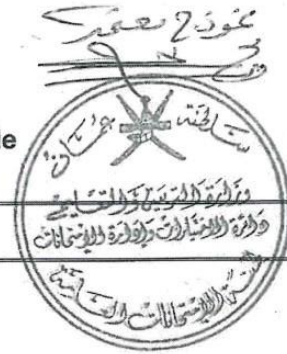 نموذج يعتمد
le
سلطنة عمان
وزارة التربية والتعليم
دائرة الاختبارات وإدارة الامتحانات
الامتحانات العامة